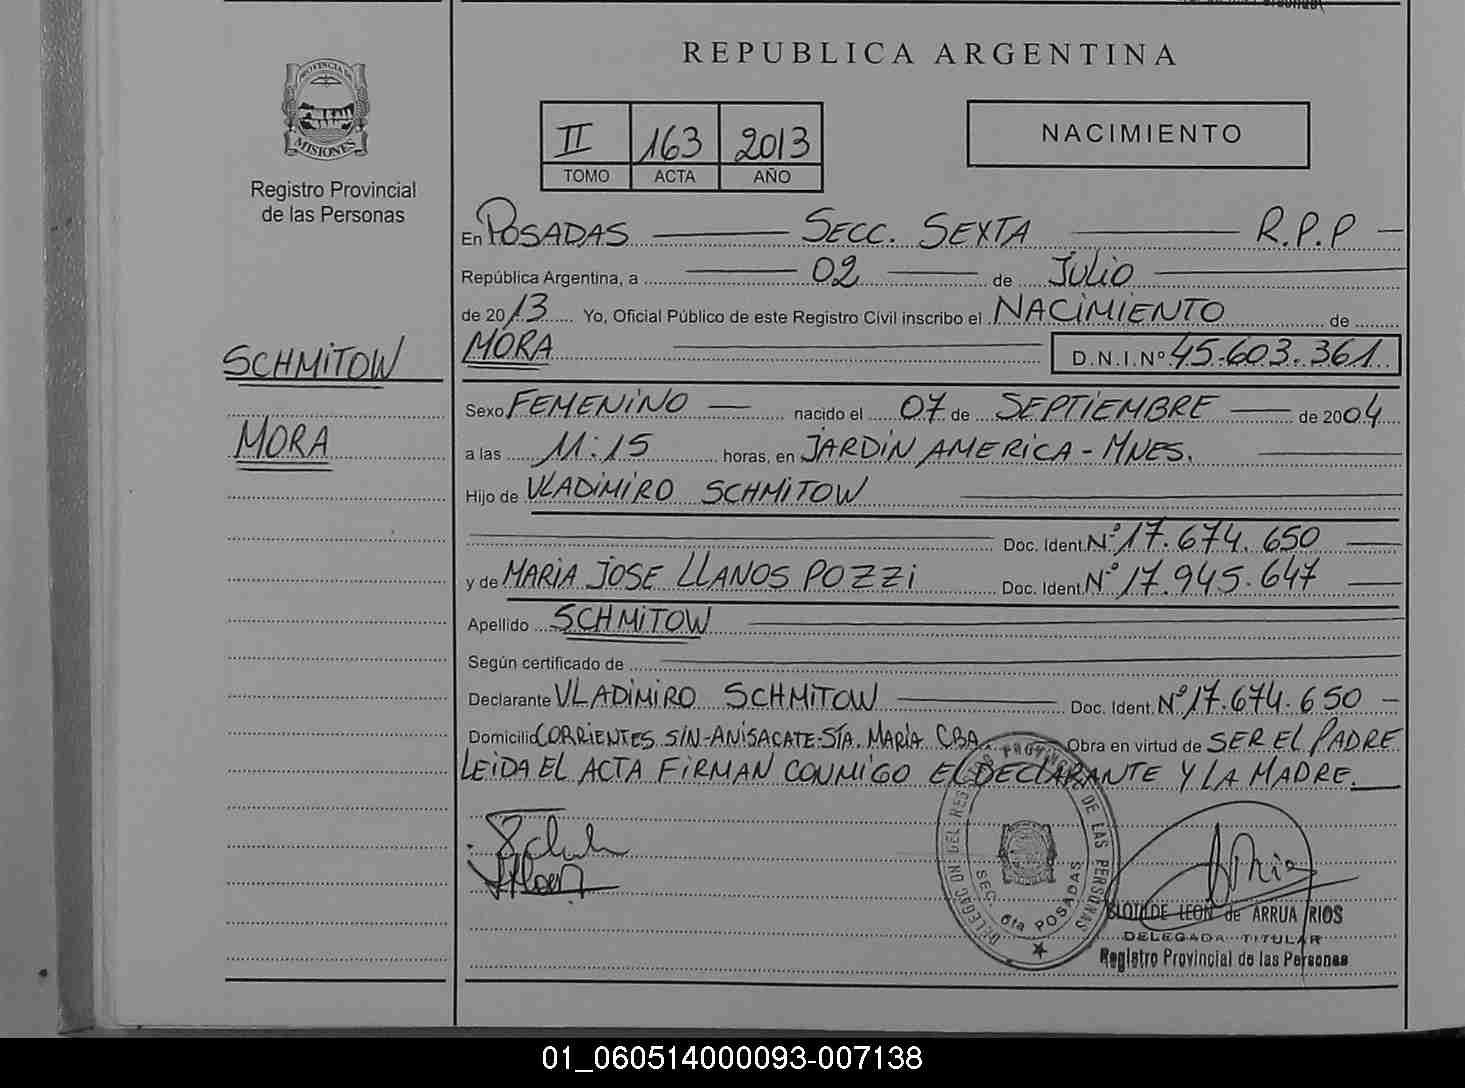 REPUBLICA ARGENTINA
PROVINCIA DE
MISIONES
Registro Provincial
de las Personas
II 163 2013
TOMO ACTA AÑO
NACIMIENTO
En POSADAS SECC. SEXTA R.P.P
República Argentina, a 02 de JULIO
de 2013 Yo, Oficial Público de este Registro Civil inscribo el NACIMIENTO de
MORA D.N.I.Nº 45.603.361
SCHMITOW
MORA
Sexo FEMENINO nacido el 07 de SEPTIEMBRE de 2004
a las 11:15 horas, en JARDIN AMERICA - MNES.
Hijo de VLADIMIRO SCHMITOW
Doc. Ident. Nº 17.674.650
y de MARIA JOSE LLANOS POZZI Doc. Ident. Nº 17.945.647
Apellido SCHMITOW
Según certificado de
Declarante VLADIMIRO SCHMITOW Doc. Ident. Nº 17.674.650
Domicilio CORRIENTES S/N-ANISACATE-STA. MARÍA CBA. Obra en virtud de SER EL PADRE
LEIDA EL ACTA FIRMAN CONMIGO EL DECLARANTE Y LA MADRE.
DE LAS PERSONAS
SEC. 6ta POSADAS
LEON de ARRUA RIOS
DELEGADA TITULAR
Registro Provincial de las Personas
01_060514000093-007138